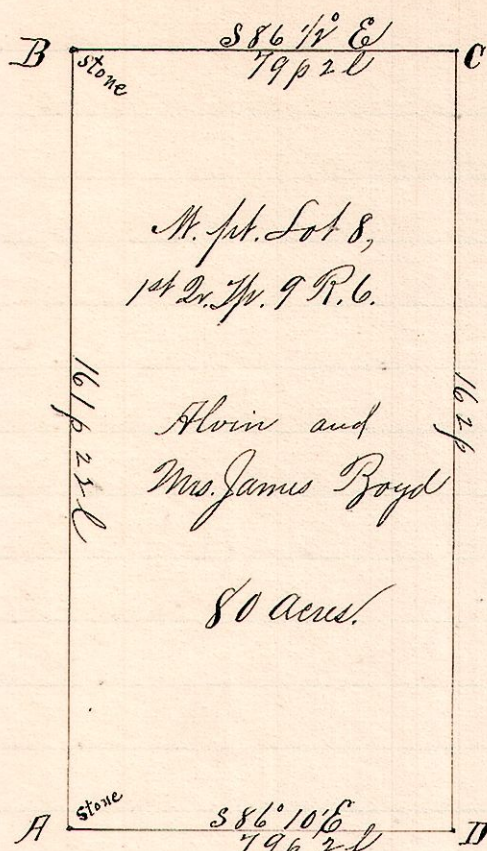 S 86 1/2° E
B
C
stone
79 p 2 l
W. pt. Lot 8,
1st Qr. Tp. 9 R. 6.
161 p 2 2 l
162 p
Alvin and
Mrs. James Boyd
80 acres.
stone
S 86° 10' E
A
D
79 p 2 l